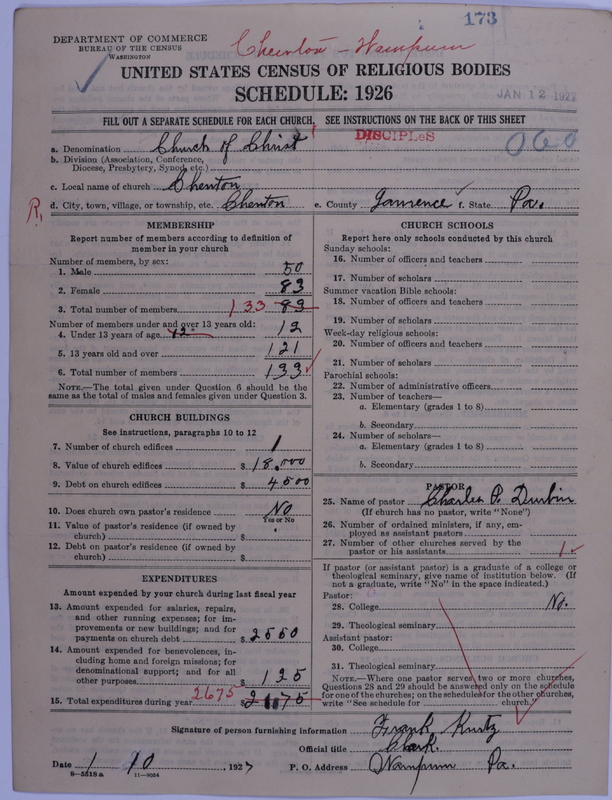 173
DEPARTMENT OF COMMERCE
BUREAU OF THE CENSUS
WASHINGTON
Chewton - Wampum
UNITED STATES CENSUS OF RELIGIOUS BODIES
SCHEDULE: 1926
JAN 12 1927
FILL OUT A SEPARATE SCHEDULE FOR EACH CHURCH. SEE INSTRUCTIONS ON THE BACK OF THIS SHEET
DISCIPLES
060
a. Denomination Church of Christ
b. Division (Association, Conference,
Diocese, Presbytery, Synod, etc.)
c. Local name of church Chewton
R.
d. City, town, village, or township, etc. Chewton e. County Lawrence f. State Pa.
MEMBERSHIP
Report number of members according to definition of
member in your church
Number of members, by sex:
1. Male 50
2. Female 83
3. Total number of members 133 83
Number of members under and over 13 years old:
4. Under 13 years of age 12 12
5. 13 years old and over 121
6. Total number of members 133
NOTE.—The total given under Question 6 should be the
same as the total of males and females given under Question 3.
CHURCH BUILDINGS
See instructions, paragraphs 10 to 12
7. Number of church edifices 1
8. Value of church edifices $ 18,000
9. Debt on church edifices $ 4500
10. Does church own pastor's residence No
Yes or No
11. Value of pastor's residence (if owned by
church) $
12. Debt on pastor's residence (if owned by
church) $
EXPENDITURES
Amount expended by your church during last fiscal year
13. Amount expended for salaries, repairs,
and other running expenses; for im-
provements or new buildings; and for
payments on church debt $ 2550
14. Amount expended for benevolences, in-
cluding home and foreign missions; for
denominational support; and for all
other purposes $ 125
15. Total expenditures during year 2675 $
CHURCH SCHOOLS
Report here only schools conducted by this church
Sunday schools:
16. Number of officers and teachers
17. Number of scholars
Summer vacation Bible schools:
18. Number of officers and teachers
19. Number of scholars
Week-day religious schools:
20. Number of officers and teachers
21. Number of scholars
Parochial schools:
22. Number of administrative officers
23. Number of teachers—
a. Elementary (grades 1 to 8)
b. Secondary
24. Number of scholars—
a. Elementary (grades 1 to 8)
b. Secondary
PASTOR
25. Name of pastor Charles P. Durbin
(If church has no pastor, write "None")
26. Number of ordained ministers, if any, em-
ployed as assistant pastors
27. Number of other churches served by the
pastor or his assistants 1
If pastor (or assistant pastor) is a graduate of a college or
theological seminary, give name of institution below. (If
not a graduate, write "No" in the space indicated.)
Pastor:
28. College No.
29. Theological seminary
Assistant pastor:
30. College
31. Theological seminary
NOTE.—Where one pastor serves two or more churches,
Questions 28 and 29 should be answered only on the schedule
for one of the churches; on the schedule for the other churches,
write "See schedule for church."
Signature of person furnishing information Frank Kurtz
Official title Clerk.
Date 1 10, 1927 P. O. Address Wampum Pa.
8—5518 a 11—9054